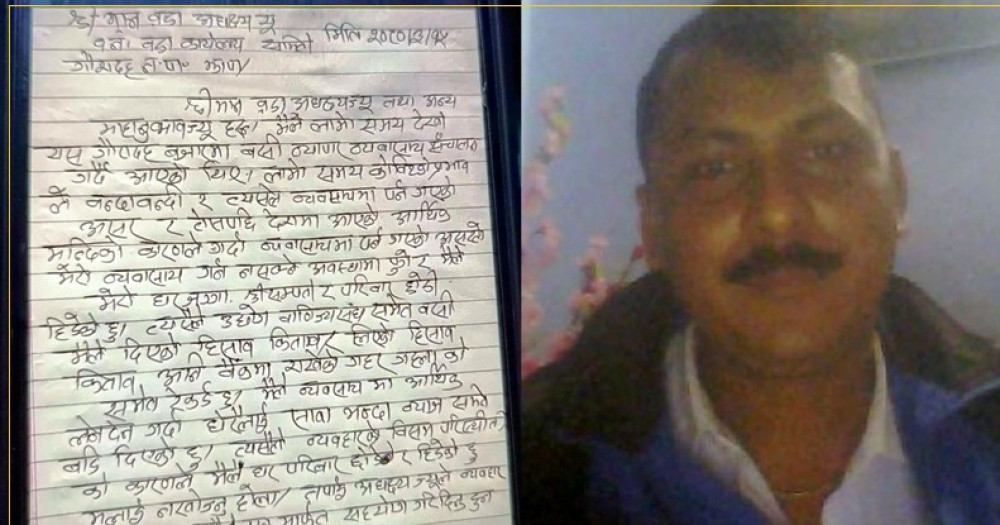 श्री मान वडा अध्यक्ष ज्यू
वडा कार्यलय मिति २०८०/२/१५
गौरादह न.पा. झापा
श्रीमान वडा अध्यक्षज्यू तथा अन्य
महानुभावज्यू हरु। मैले लामो समय देखी
यस गौरादह बजारमा बसी व्यापार व्यवासाय संचालन
गर्दै आएको थिए। लामो समय कोविडको प्रभाव
ले बन्दाबन्दी र त्यसले व्यवसायमा पर्न गएको
असर र त्सपछि देशमा आएको आर्थिक
मन्दिको कारणले गर्दा व्यवासायमा पर्न गएको असरले
मेरो व्यवासाय गर्न नसक्ने अवस्थामा पुगे र मैले
मेरो घर जग्गा, श्रीसम्पती र परिवार छोडी
हिडेको छु। त्यसैले उद्योग वाणिज्यसंघ समेत बसी
मैले दिएको हिसाब किताब र लिएको हिसाब
किताब अनि बैंकमा राखेको गहर गहना को
समेत रेकर्ड छ। मैले व्यवसाय मा आर्थिक
लेनदेन गर्दा धेरैलाई सावा भन्दा ब्याज समेत
बढि दिएको छु। त्यसैले व्यवहारको विसम परिस्थीती
को कारणले मैले घर परिवार छोडेर हिडेको छु
मलाई नखोज्नु होला। तपाई अध्यक्ष ज्यूले व्यवहार
मार्फत सहयोग गरिदिनु हुन